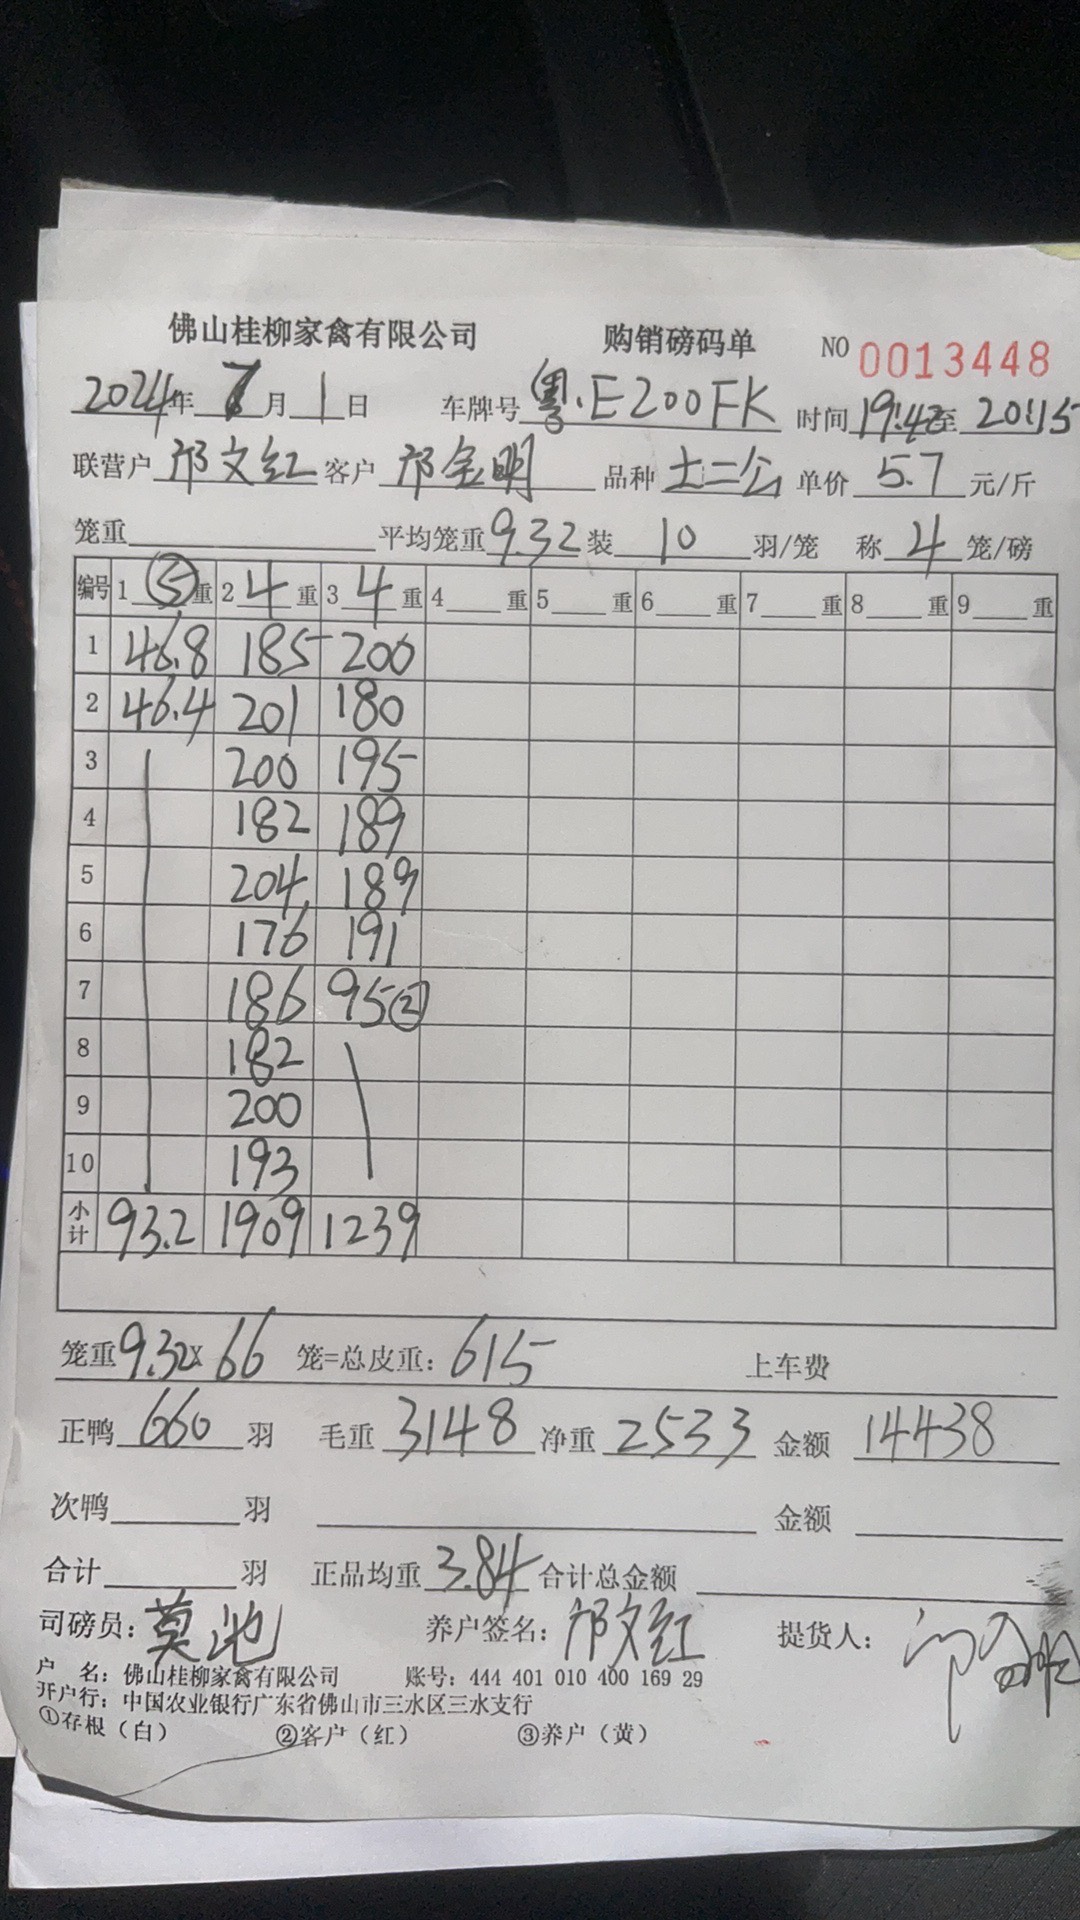 佛山桂柳家禽有限公司 购销磅码单 NO 0013448
2024年 7月 1日 车牌号 粤·E200FK 时间 19:42至 20:15
联营户 邝文红 客户 邝金明 品种 土二公 单价 5.7 元/斤
笼重 平均笼重 9.32 装 10 羽/笼 称 4 笼/磅
编号 1 ⑤ 重 2 4 重 3 4 重 4 重 5 重 6 重 7 重 8 重 9 重
1 46.8 185 200
2 46.4 201 180
3 200 195
4 182 189
5 204 189
6 176 191
7 186 95②
8 182
9 200
10 193
小计 93.2 1909 1239
笼重 9.32 x 66 笼=总皮重: 615 上车费
正鸭 660 羽 毛重 3148 净重 2533 金额 14438
次鸭 羽 金额
合计 羽 正品均重 3.84 合计总金额
司磅员: 莫池 养户签名: 邝文红 提货人:
户 名: 佛山桂柳家禽有限公司 账号: 444 401 010 400 169 29
开户行: 中国农业银行广东省佛山市三水区三水支行
①存根(白) ②客户(红) ③养户(黄)